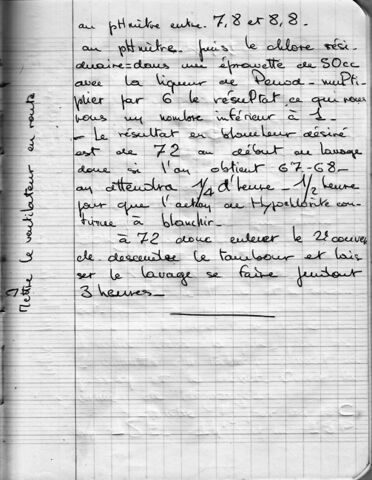 au pHmètre entre 7,8 et 8,8.
au pHmètre. puis le chlore rési-
duaire = dans une éprouvette de 50cc
avec la liqueur de Penod - multi-
plier par 6 le résultat ce qui nous
nous un nombre inférieur à 1 -
- Le résultat en blancheur désiré
est de 72 au début au lavage
donc si l'on obtient 67-68 -
on attendra 1/4 d'heure - 1/2 heure
pour que l'action de Hypochlorite con-
tinue à blanchir -
à 72 donc enlever le 2e couver
cle descendre le tambour et lais
ser le lavage se faire pendant
3 heures -
Mettre le ventilateur en route